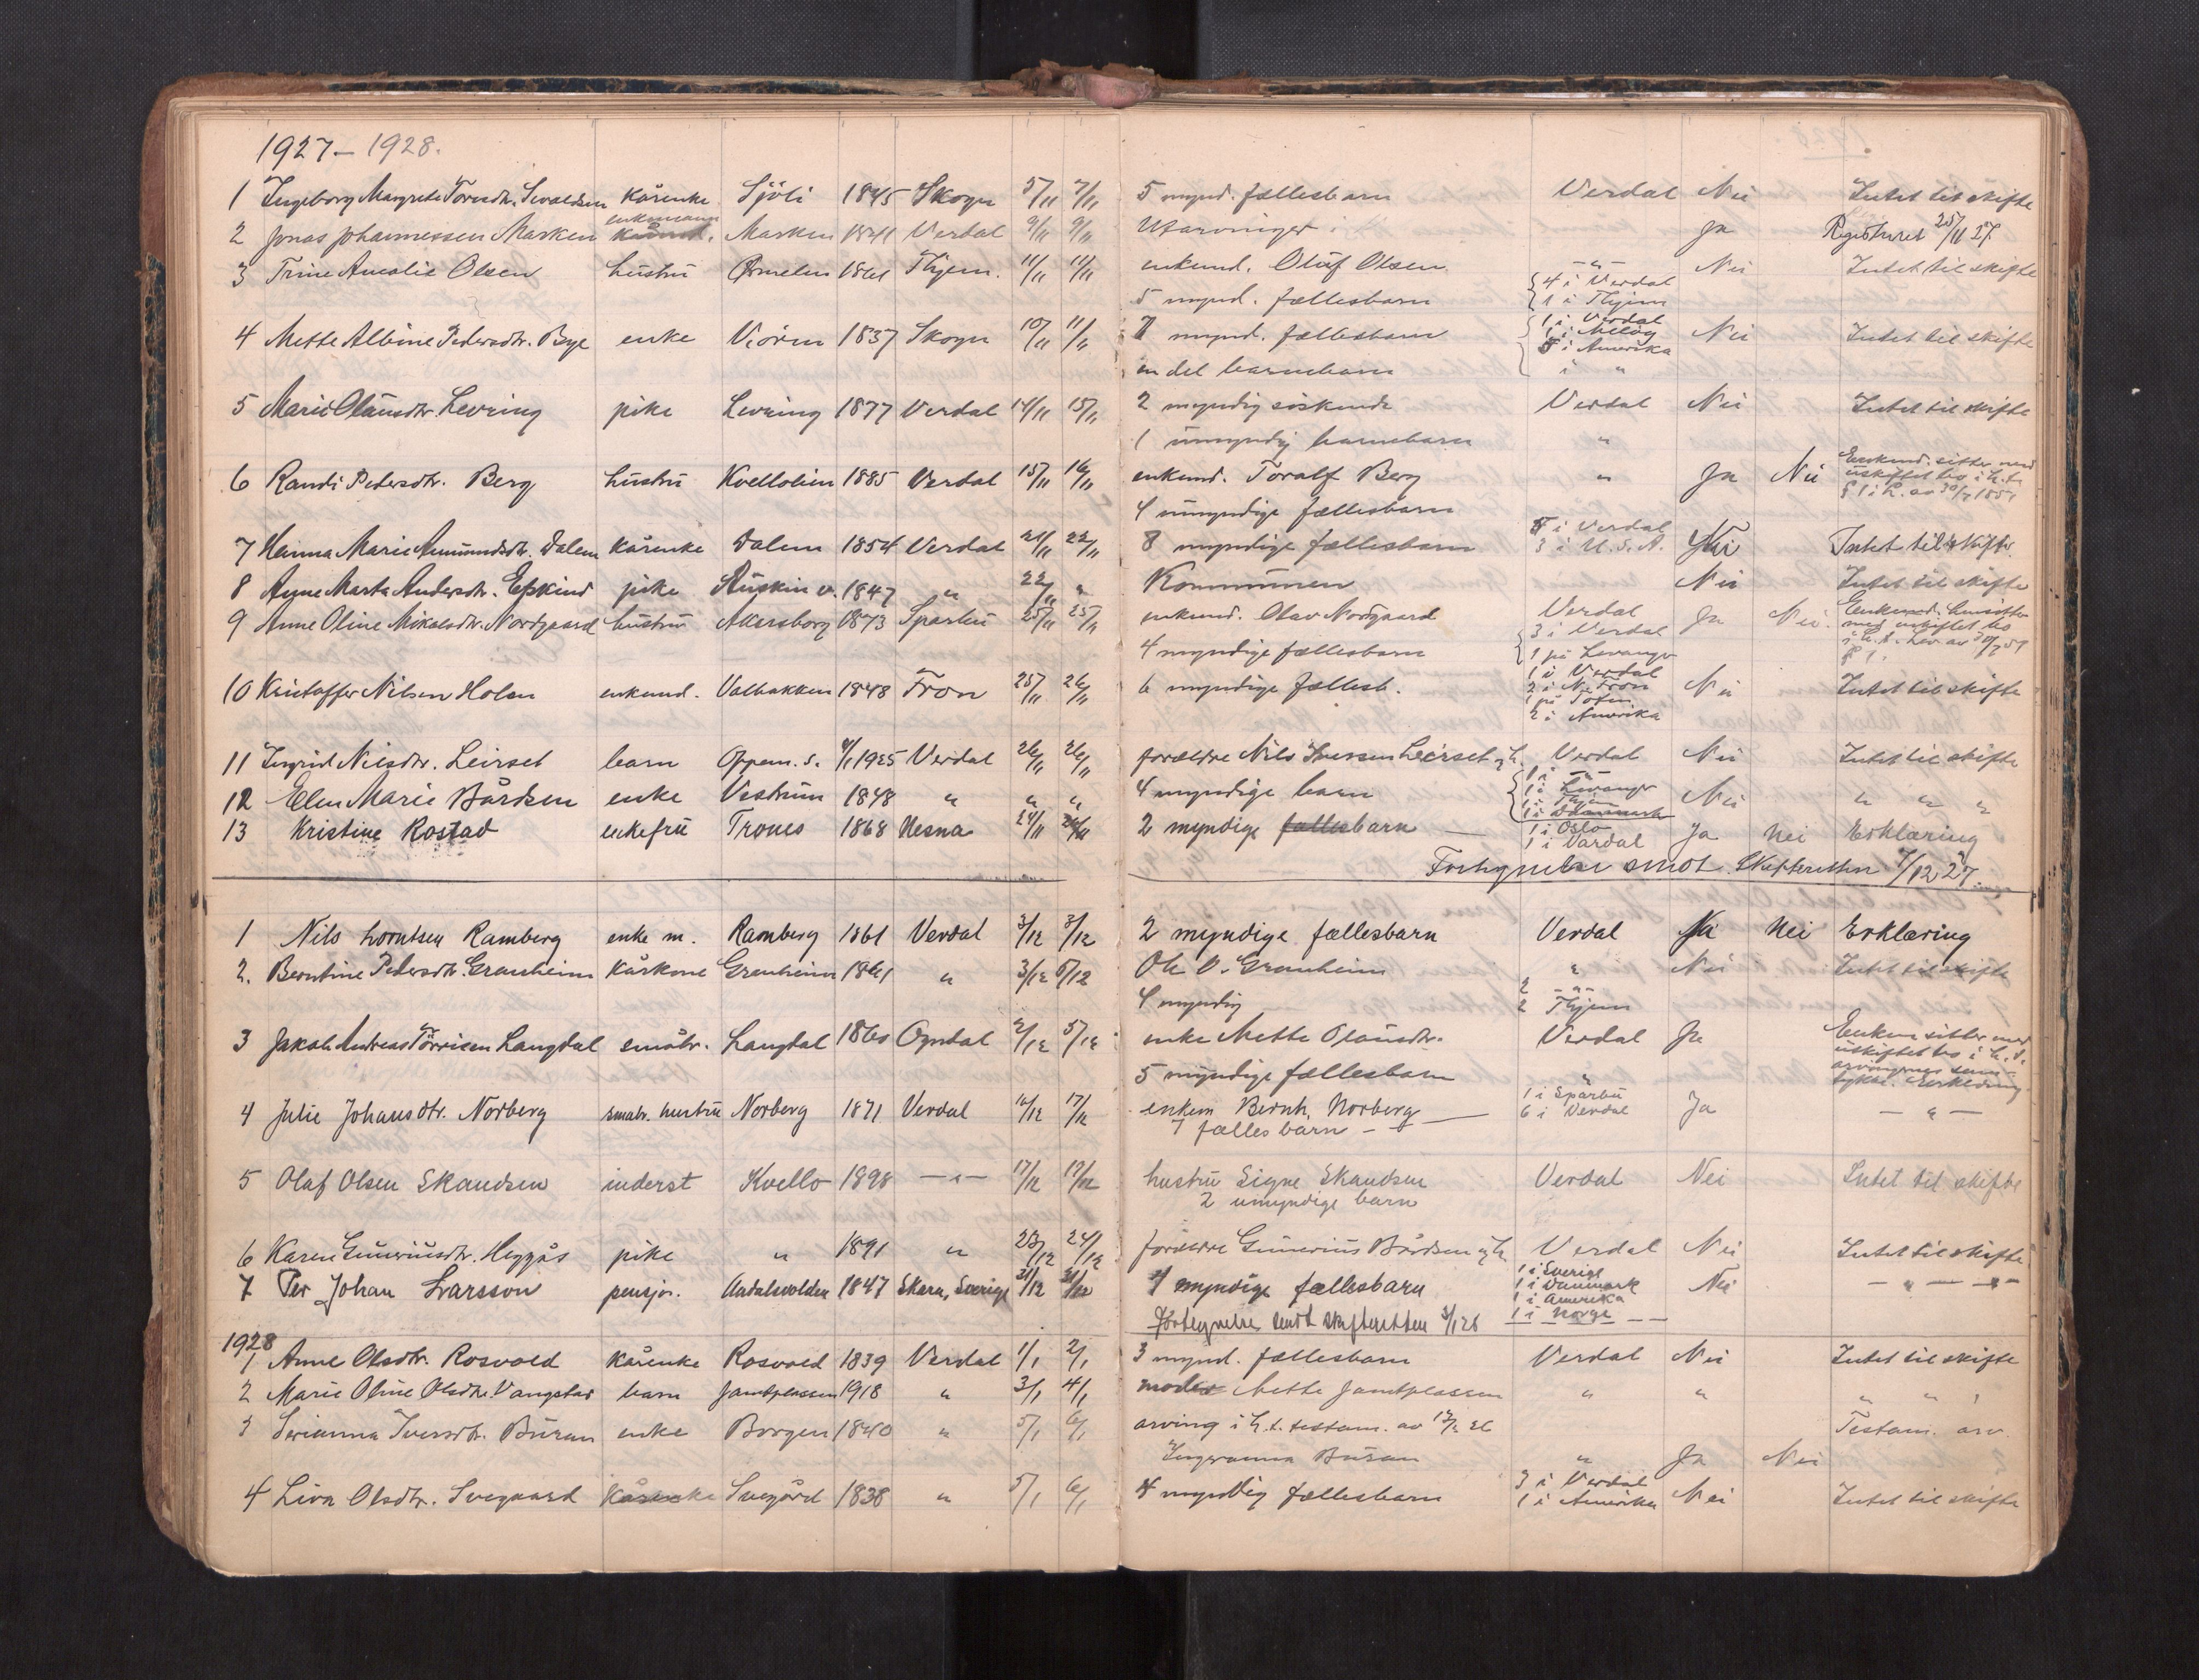 1927 – 1928.
1 Ingeborg Margrete Toresdtr. Sivaldsen kårenke Sjöli 1845 Skogn 5/11 7/11 5 mynd. fællesbarn Verdal Nei Intet til skifte
enkemann
2 Jonas Johannessen Marken Marken 1841 Verdal 9/11 9/11 Utarvinger Ja Registreret 25/11 27.
3 Trine Amalie Olsen hustru Ørmelen 1861 Thjem. 11/11 11/11 enkemd. Oluf Olsen –"– Nei Intet til skifte
5 mynd. fællesbarn { 4 i Verdal
1 i Thjem
4 Mette Albine Pedersdtr. Bye enke Viören 1837 Skogn 10/11 11/11 7 mynd. fællesbarn { 1 i Verdal Nei Intet til skifte
i Amerika
en del barnebarn i "
5 Marie Olausdtr. Levring pike Levring 1877 Verdal 14/11 15/11 2 myndig söskende Verdal Nei Intet til skifte
1 umyndig barnebarn "
6 Randi Pedersdtr. Berg hustru Kvellolien 1885 Verdal 15/11 16/11 enkemd. Toralf Berg " Ja Nei Enkemd. sitter med
uskiftet bo i h.t.
§ 1 i L. av 30/7 1851
4 umyndige fællesbarn
7 Hanna Marie Amundsdtr. Dalem kårenke Dalem 1854 Verdal 21/11 22/11 8 myndige fællesbarn 5 i Verdal
3 i U.S.A. Nei Intet til skifte
8 Anne Marta Andersdtr. Eskind pike Auskin v. 1847 " 22/11 " Kommunen Nei Intet til skifte
9 Anne Oline Mikalsdtr. Nordgaard hustru Akersborg 1873 Sparbu 25/11 25/11 enkemd. Olav Nordgaard Verdal Ja Nei. Enkemd. hensitter
med uskiftet bo
i h.t. Lov av 30/7 51
§ 1.
4 myndige fællesbarn { 3 i Verdal
1 på Levanger
10 Kristoffer Nilsen Holen enkemd. Valbakken 1848 Fron 25/11 26/11 6 myndige fællesb. 1 i Verdal Nei Intet til skifte
2 i N. Fron
1 på Toten
2 i Amerika
11 Ingrid Nilsdtr. Leirset barn Oppem. s. 4/1 1925 Verdal 26/11 26/11 forældre Nils Iversen Leirset og h. Verdal Nei Intet til skifte
12 Elen Marie Bårdsen enke Vestrum 1848 " " " 4 myndige barn { 1 i –"–
1 i Levanger
1 i Thjem
1 i Danmark Nei " " "
13 Kristine Rostad enkefru Trones 1868 Nesna 24/11 26/11 2 myndige fællesbarn — 1 i Oslo
1 i Vardal Ja Nei Erklæring
Fortegnelse sendt Skifteretten 7/12 27.
1 Nils Lorntsen Ramberg enke m. Ramberg 1861 Verdal 3/12 3/12 2 myndige fællesbarn Verdal Ja Nei Erklæring
2. Berntine Pedersdtr. Granheim kårkone Granheim 1861 " 3/12 5/12 Ole O. Granheim " Nei Intet til skifte
4 myndig 2 –"–
2 Thjem
3 Jakob Andreas Törrisen Langdal småbr. Langdal 1860 Ogndal 2/12 5/12 enke Mette Olausdtr. Verdal Ja Enken sitter med
uskiftet bo i h.t.
arvingernes sam-
tykke. Erklæring
5 myndige fællesbarn "
4 Julie Johansdtr. Norberg småbr. hustru Norberg 1871 Verdal 16/12 17/12 enkem Bernh. Norberg — 1 i Sparbu
6 i Verdal Ja – " –
7 fælles barn –
5 Olaf Olsen Skandsen inderst Kvello 1898 –"– 17/12 19/12 hustru Signe Skandsen Verdal Nei Intet til skifte
2 umyndige barn
6 Karen Gunneriusdtr. Heggås pike " 1891 " 23/12 24/12 forældre Gunerius Bårdsen og h. Verdal Nei Intet til skifte
7 Per Johan Larsson pensjor. Aadalsvolden 1847 Skara, Sverige 31/12 31/12 4 myndige fællesbarn 1 i Sverige
1 i Danmark
1 i Amerika
1 i Norge Nei – " – " –
Fortegnelse sendt skifteretten 3/1 28
1928
1 Anne Olsdtr. Rosvold kårenke Rosvold 1839 Verdal 1/1 2/1 3 mynd. fællesbarn Verdal Nei Intet til skifte
2 Marie Oline Olsdtr. Vangstad barn Jamtplassen 1918 " 3/1 4/1 moder Mette Jamtplassen " " " "
3 Serianna Iversdtr. Buran enke Borgen 1840 " 5/1 6/1 arving i h.t. testam. av 12/2 26 Testam. arv.
Ingeranna Buran " Ja Nei
4 Liva Olsdtr. Svegaard kårenke Svegård 1838 " 5/1 6/1 4 myndig fællesbarn 3 i Verdal
1 i Amerika Nei Intet til skifte